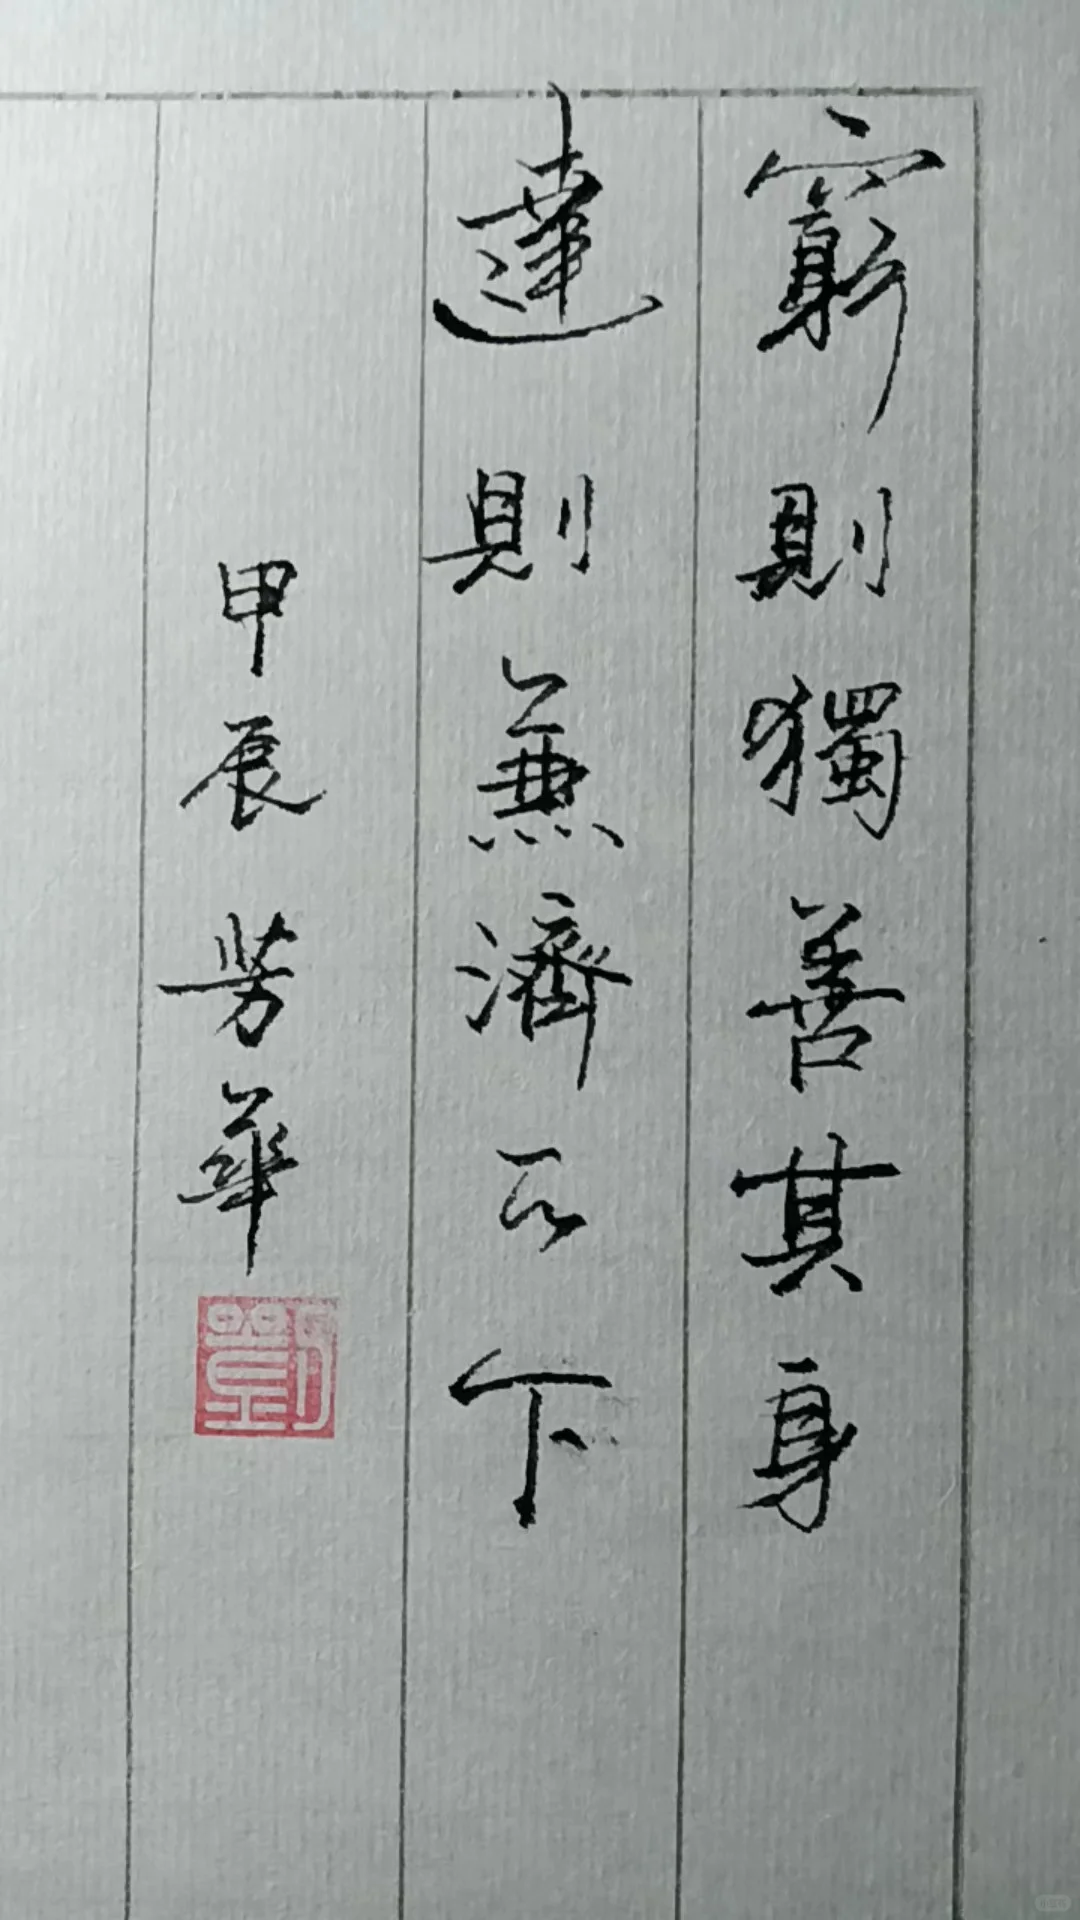 窮則獨善其身
達則兼濟天下
甲辰 芳華
劉